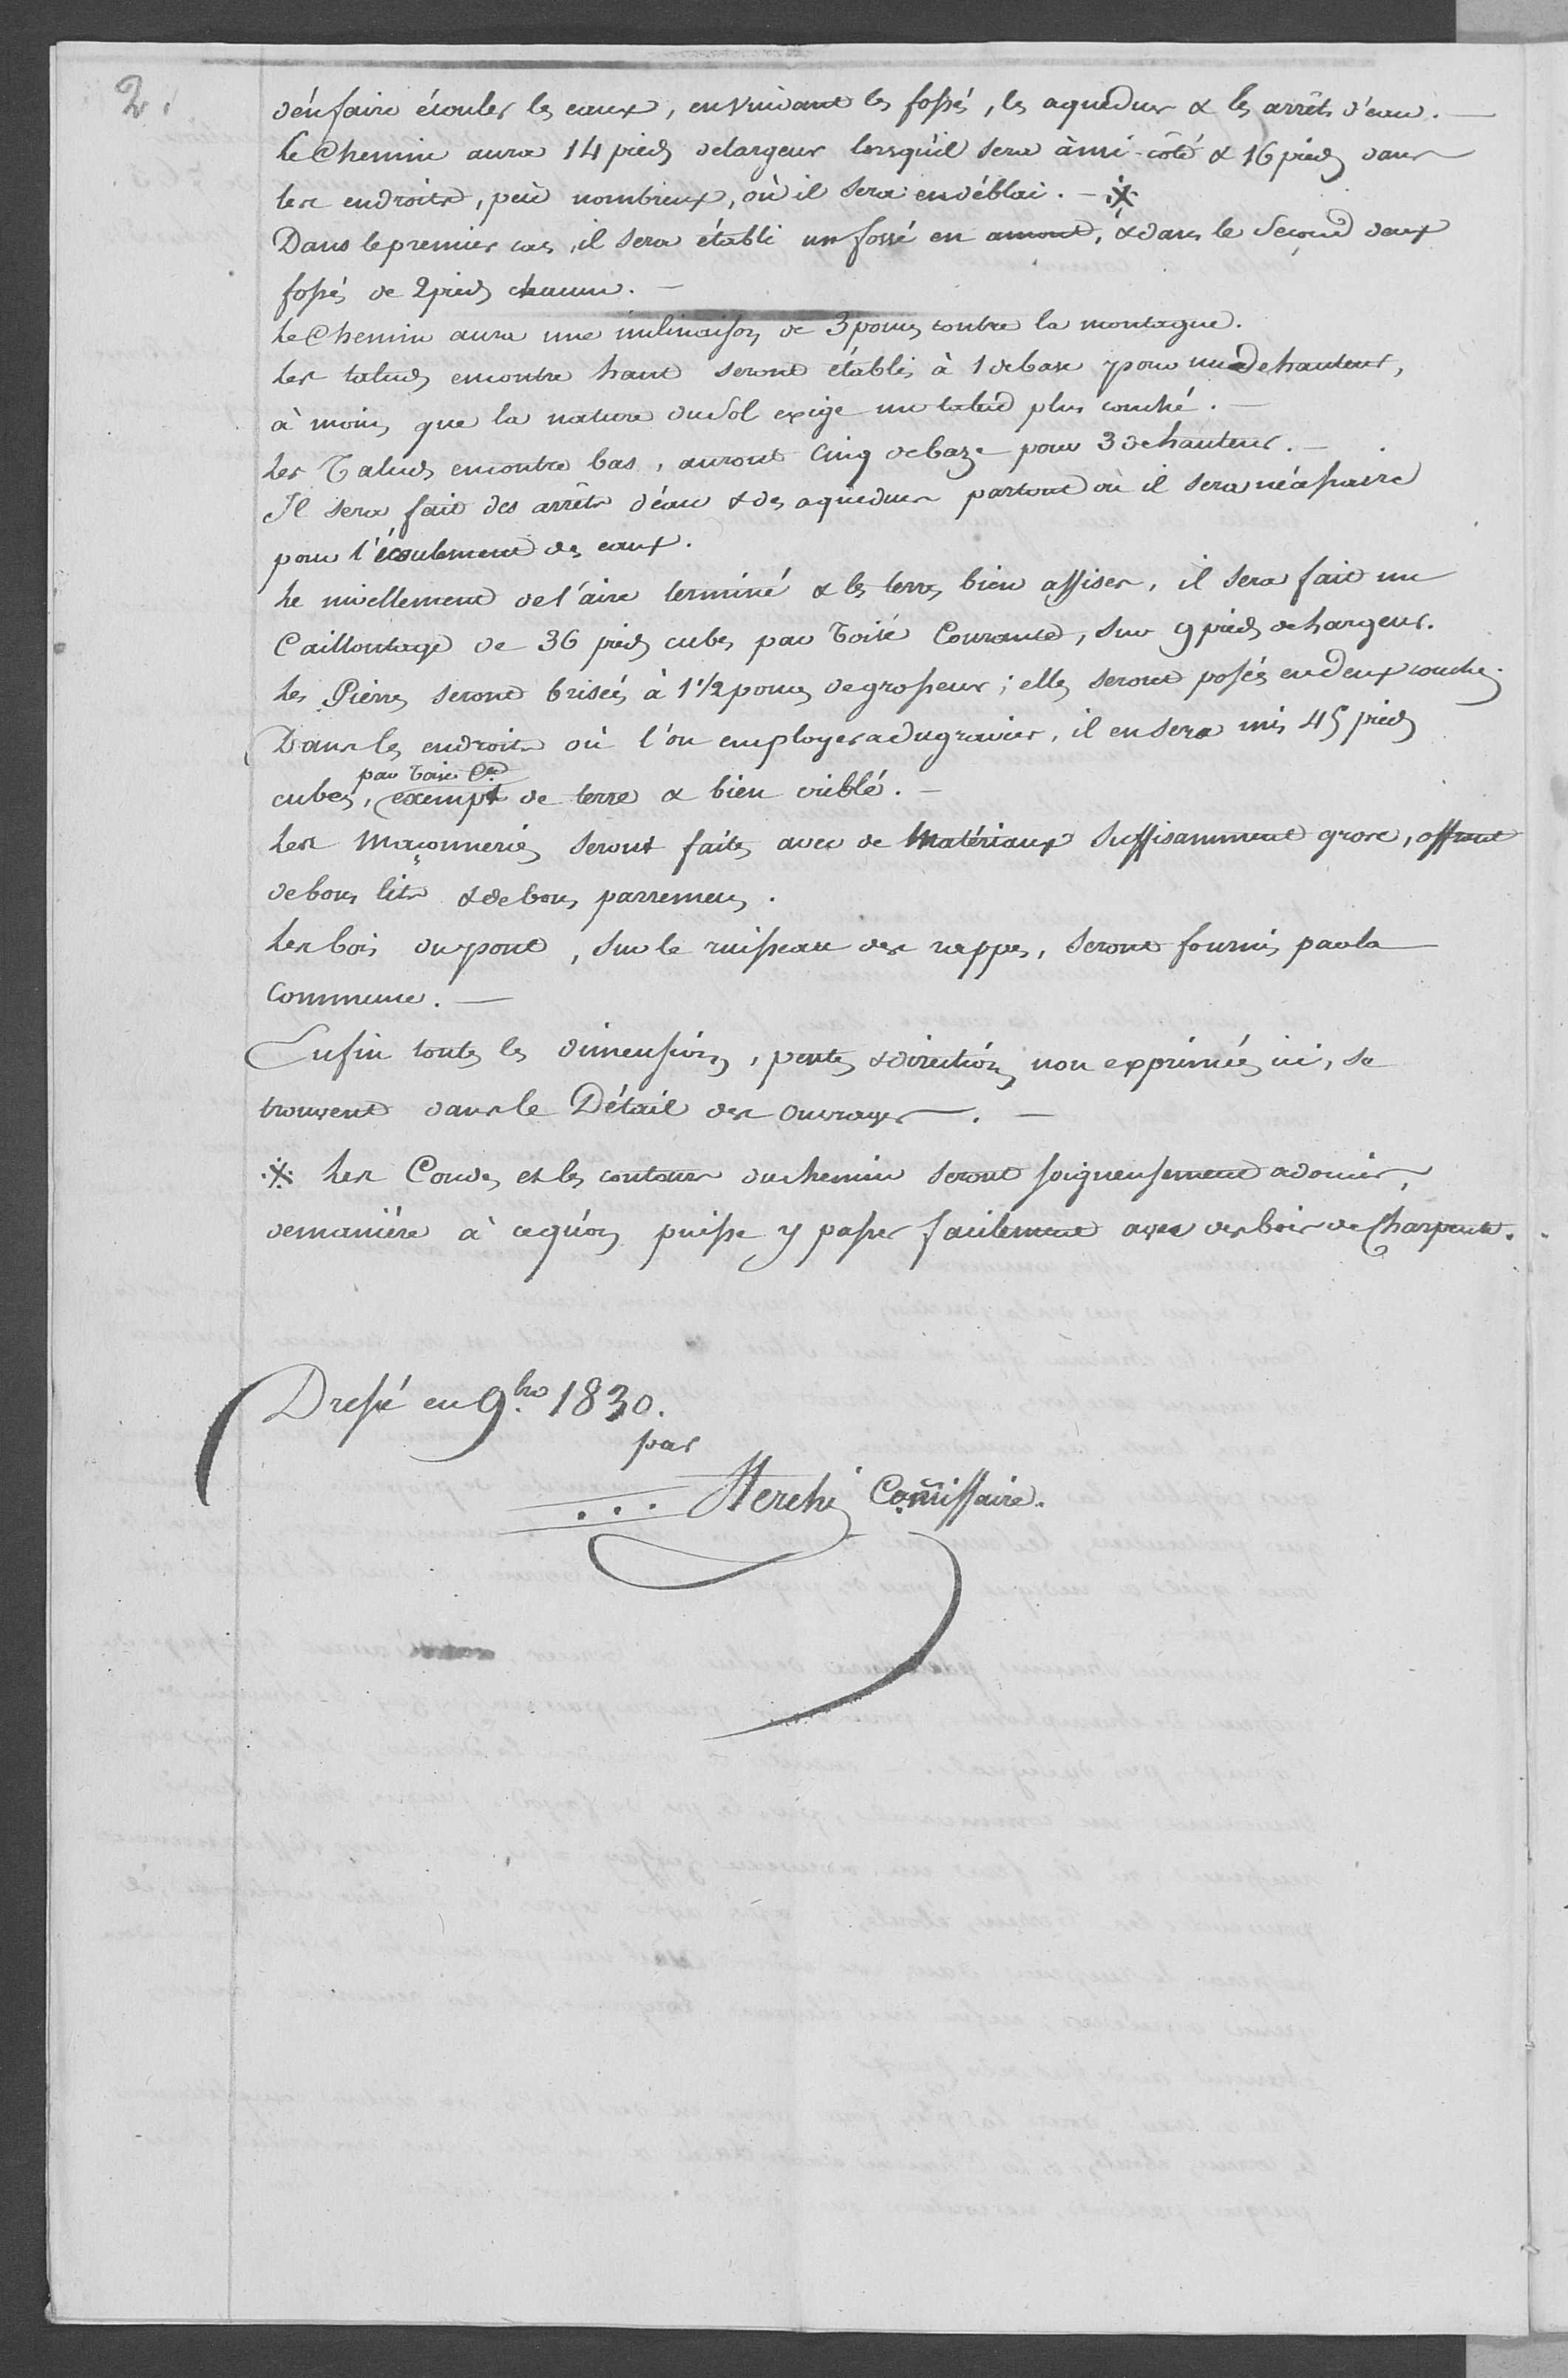 2.
d'en faire écouler les eaux, en vuidant les fossés, les aqueducs & les arrêts d'eau. —
Le Chemin aura 14 pieds de largeur lorsqu'il sera à mi-côte & 16 pieds dans
les endroits, peu nombreux, où il sera en déblai. — ※
Dans le premier cas, il sera établi un fossé en amont, & dans le second deux
fossés de 2 pieds chacun. —
Le Chemin aura une inclinaison de 3 pouces contre la montagne.
Les taluds encontre haut seront établis à 1 de base pour un de hauteur,
à moins que la nature du Sol exige un talud plus couché. —
Les Taluds encontre bas, auront cinq de baze pour 3 de hauteur. —
Il sera fait des arrêts d'eau & des aqueducs partout où il sera nécessaire
pour l'écoulement des eaux.
Le nivellement de l'aire terminé & les terres bien assises, il sera fait un
Cailloutage de 36 pieds cubes par Toise Courante, sur 9 pieds de largeur.
Les Pierres seront brisées à 1 1/2 pouces de grosseur; elles seront posées en deux couches.
Dans les endroits où l'on employera du gravier, il en sera mis 45 pieds
par Toise Cte
cubes, exempt de terre & bien criblé. —
Les Maçonneries seront faites avec de Matériaux suffisamment gros, offrant
de bons lits & de bons parremens.
Les bois du pont, sur le ruisseau des rappes, seront fournis par la
Commune. —
Enfin toutes les dimensions, pentes & directions non exprimées ici, se
trouvent dans le Détail des Ouvrages. —
※ Les Coudes et les contours du chemin seront soigneusement adoucis,
de manière à ce qu'on puisse y passer facilement avec des bois de Charpente.
Dressé en 9bre 1830.
par
Sterchi Commissaire.